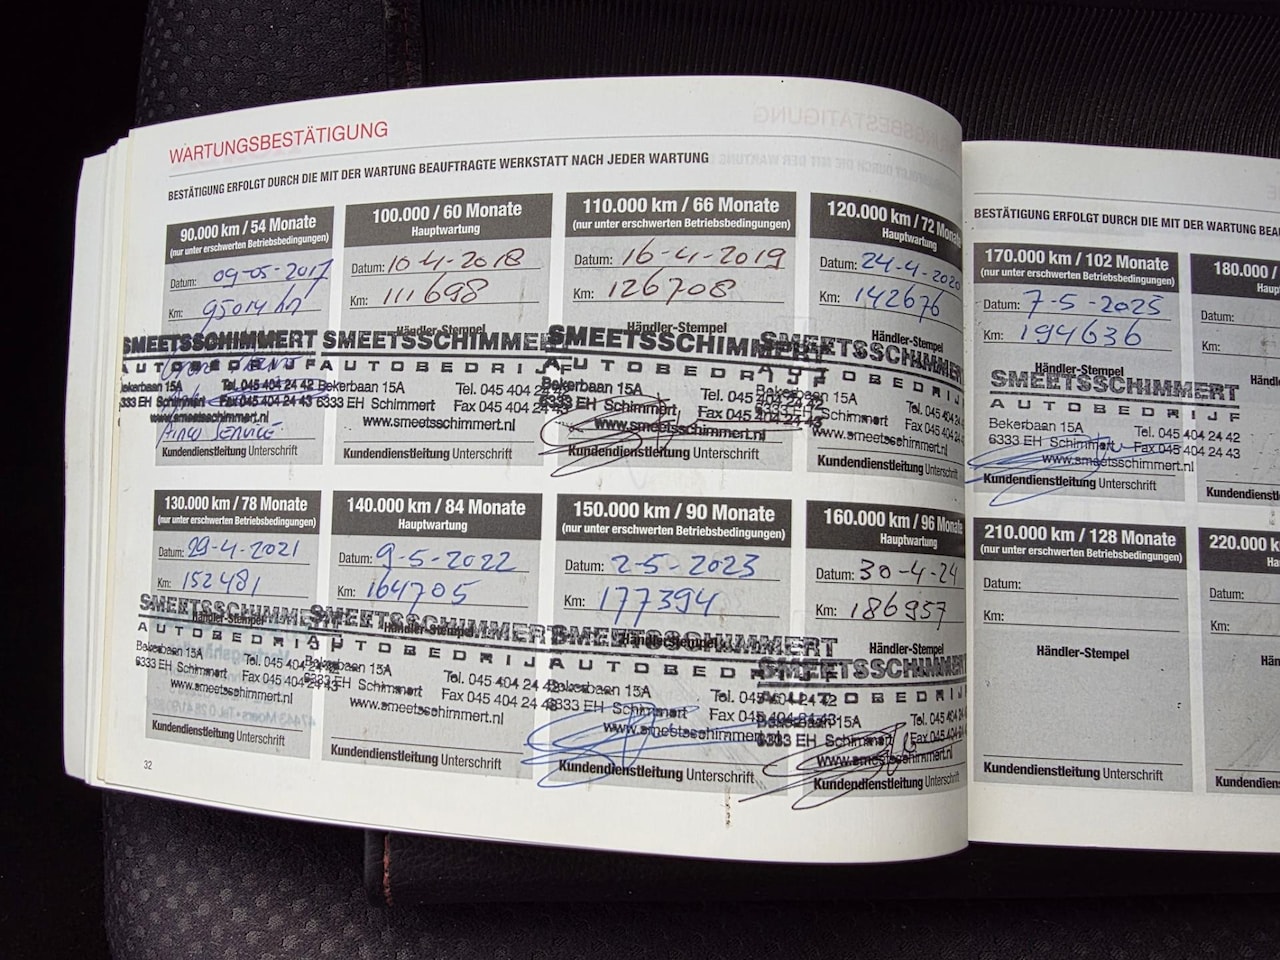 WARTUNGSBESTÄTIGUNG
BESTÄTIGUNG ERFOLGT DURCH DIE MIT DER WARTUNG BEAUFTRAGTE WERKSTATT NACH JEDER WARTUNG
90.000 km / 54 Monate
(nur unter erschwerten Betriebsbedingungen)
Datum: 09-05-2017
Km: 95014 km
SMEETSSCHIMMERT
AUTOBEDRIJF
Bekerbaan 15A Tel. 045 404 24 42
6333 EH Schimmert Fax 045 404 24 43
www.smeetsschimmert.nl
Service
Kundendienstleitung Unterschrift
100.000 km / 60 Monate
Hauptwartung
Datum: 10-4-2018
Km: 111698
Händler-Stempel
SMEETSSCHIMMERT
AUTOBEDRIJF
Bekerbaan 15A Tel. 045 404 24
6333 EH Schimmert Fax 045 404 24 43
www.smeetsschimmert.nl
Kundendienstleitung Unterschrift
110.000 km / 66 Monate
(nur unter erschwerten Betriebsbedingungen)
Datum: 16-4-2019
Km: 126708
Händler-Stempel
SMEETSSCHIMMERT
AUTOBEDRIJF
Bekerbaan 15A Tel. 045 404 24 42
6333 EH Schimmert Fax 045 404 24 43
www.smeetsschimmert.nl
Kundendienstleitung Unterschrift
120.000 km / 72 Monate
Hauptwartung
Datum: 24-4-2020
Km: 142676
Händler-Stempel
SMEETSSCHIMMERT
AUTOBEDRIJF
Bekerbaan 15A Tel. 045 404
6333 EH Schimmert Fax 045 404
www.smeetsschimmert.nl
Kundendienstleitung Unterschrift
130.000 km / 78 Monate
(nur unter erschwerten Betriebsbedingungen)
Datum: 29-4-2021
Km: 152481
Händler-Stempel
SMEETSSCHIMMERT
AUTOBEDRIJF
Bekerbaan 15A Tel. 045 404 24 42
6333 EH Schimmert Fax 045 404 24 43
www.smeetsschimmert.nl
Kundendienstleitung Unterschrift
140.000 km / 84 Monate
Hauptwartung
Datum: 9-5-2022
Km: 164705
Händler-Stempel
SMEETSSCHIMMERT
AUTOBEDRIJF
Bekerbaan 15A Tel. 045 404 24 42
6333 EH Schimmert Fax 045 404 24 43
www.smeetsschimmert.nl
Kundendienstleitung Unterschrift
150.000 km / 90 Monate
(nur unter erschwerten Betriebsbedingungen)
Datum: 2-5-2023
Km: 177394
Händler-Stempel
SMEETSSCHIMMERT
AUTOBEDRIJF
Bekerbaan 15A Tel. 045 404 24 42
6333 EH Schimmert Fax 045 404 24 43
www.smeetsschimmert.nl
Kundendienstleitung Unterschrift
160.000 km / 96 Monate
Hauptwartung
Datum: 30-4-24
Km: 186957
Händler-Stempel
SMEETSSCHIMMERT
AUTOBEDRIJF
Bekerbaan 15A Tel. 045 404 24
6333 EH Schimmert Fax 045 404 24
www.smeetsschimmert.nl
Kundendienstleitung Unterschrift
32
BESTÄTIGUNG ERFOLGT DURCH DIE MIT DER WARTUNG BEAU
170.000 km / 102 Monate
(nur unter erschwerten Betriebsbedingungen)
Datum: 7-5-2025
Km: 194636
Händler-Stempel
SMEETSSCHIMMERT
AUTOBEDRIJF
Bekerbaan 15A Tel. 045 404 24 42
6333 EH Schimmert Fax 045 404 24 43
www.smeetsschimmert.nl
Kundendienstleitung Unterschrift
180.000 /
Datum:
Km:
Kundendienst
210.000 km / 128 Monate
(nur unter erschwerten Betriebsbedingungen)
Datum:
Km:
Händler-Stempel
Kundendienstleitung Unterschrift
220.000 k
Datum:
Km:
Kundendien